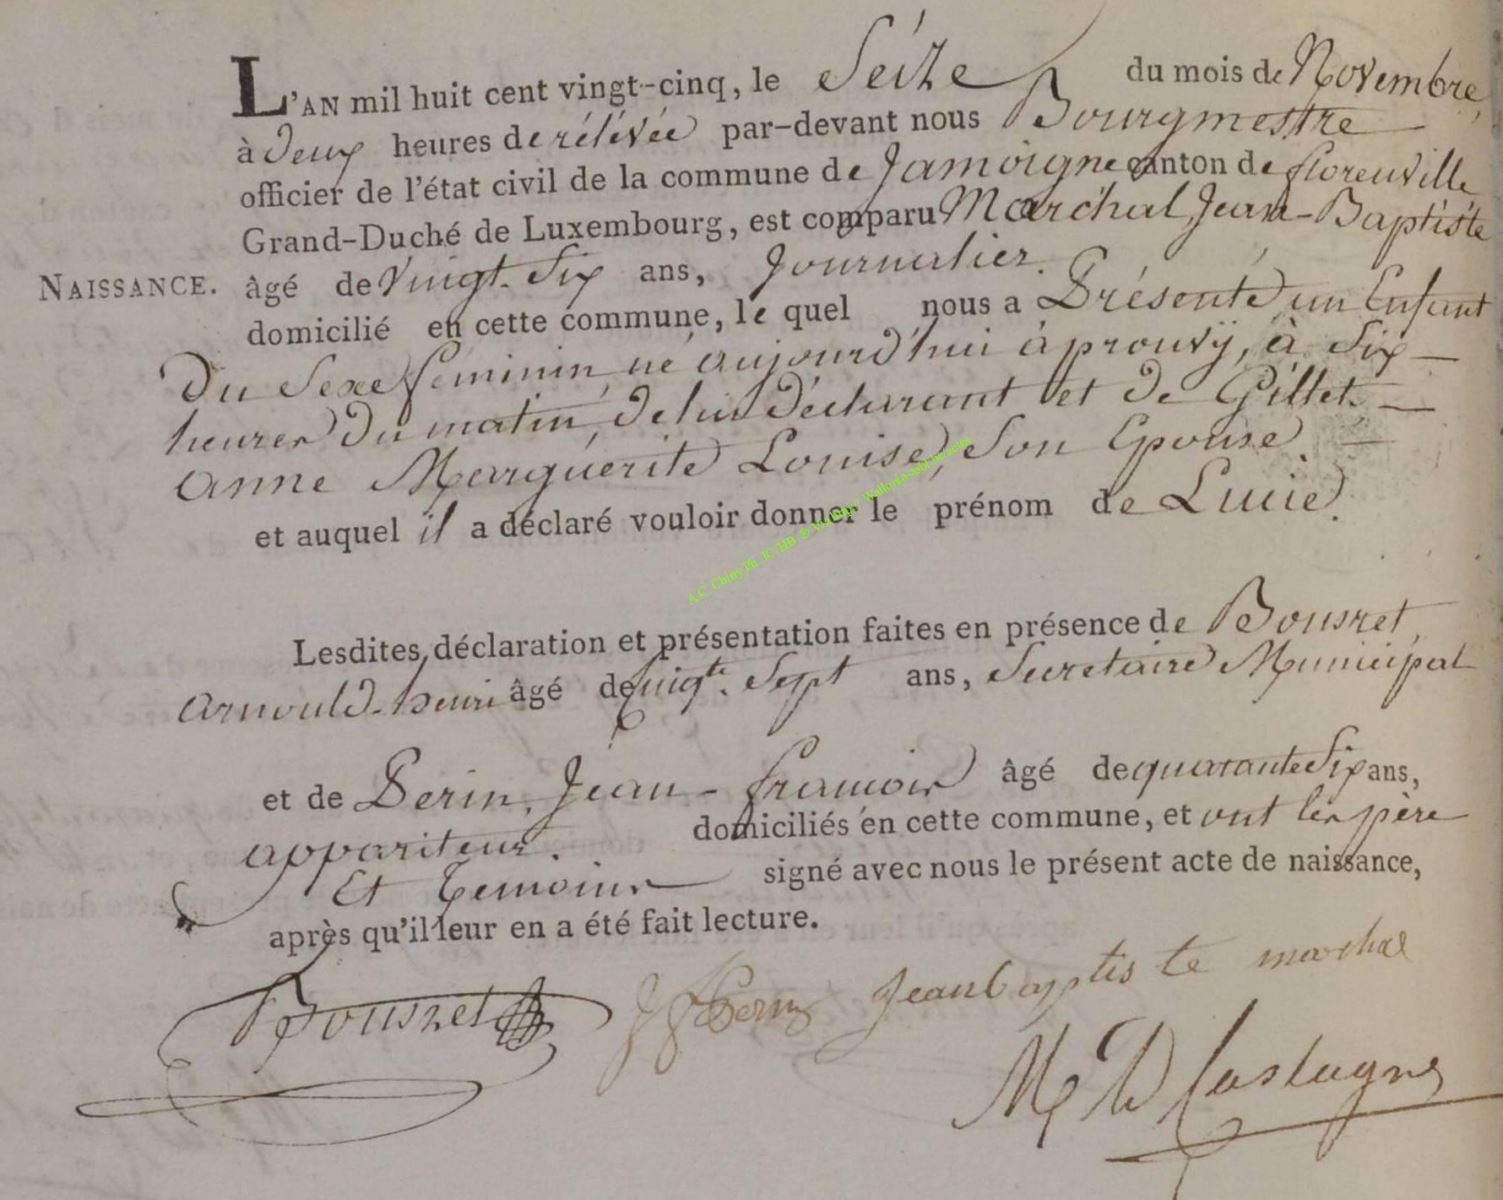 L'AN mil huit cent vingt-cinq, le Seize du mois de Novembre,
à deux heures de rélévée par-devant nous Bourgmestre
officier de l'état civil de la commune de Jamoigne canton de florenville
Grand-Duché de Luxembourg, est comparu Marchal Jean-Baptiste
NAISSANCE. âgé de Vingt-Six ans, Journalier.
domicilié en cette commune, le quel nous a Présenté un Enfant
Du Sexe féminin, né aujourd'hui à prouvÿ, à Six
heures Du matin, De lui Déclarant et de Gillet
Anne Marguérite Louise, Son Epouse.
et auquel il a déclaré vouloir donner le prénom de Lucie.
Lesdites déclaration et présentation faites en présence de Bousret,
Arnould-henri âgé de vingt-Sept ans, Secretaire Municipal
et de Perin, Jean-francois âgé de quarante Six ans,
appariteur. domiciliés en cette commune, et ont les père
Et Temoins signé avec nous le présent acte de naissance,
après qu'il leur en a été fait lecture.
Bousret JfPerin Jeanbaptiste marchal